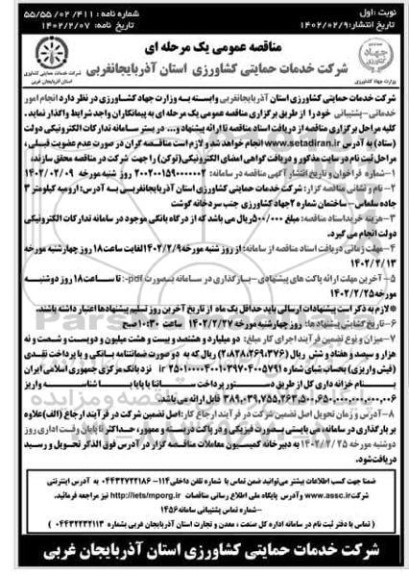 نوبت :اول
تاریخ انتشار:۱۴۰۲/۰۲/۹
شماره نامه : ۵۵/۵۵/۰۲/۴۱۱
تاریخ نامه: ۱۴۰۲/۲/۰۷
مناقصه عمومی یک مرحله ای
شرکت خدمات حمایتی کشاورزی استان آذربایجانغربی
شرکت خدمات حمایتی کشاورزی استان آذربایجانغربی وابسته به وزارت جهاد کشاورزی در نظر دارد انجام امور
خدماتی-پشتیبانی خود را از طریق برگزاری مناقصه عمومی یک مرحله ای به پیمانکاران واجد شرایط واگذار نماید .
کلیه مراحل برگزاری مناقصه از دریافت اسناد مناقصه تا ارائه پیشنهاد و... در بستر سامانه تدارکات الکترونیکی دولت
(ستاد) به آدرس www.setadiran.ir انجام خواهد شد و لازم است مناقصه گران در صورت عدم عضویت قبلی ،
مراحل ثبت نام در سایت مذکور و دریافت گواهی امضای الکترونیکی(توکن) را جهت شرکت در مناقصه محقق سازند،
۱- شماره فراخوان و تاریخ انتشار آگهی مناقصه در سامانه: ۲۰۰۲۰۰۱۵۹۰۰۰۰۰۰۲ روز شنبه مورخه ۱۴۰۲/۰۲/۰۹
۲- نام و نشانی مناقصه گزار: شرکت خدمات حمایتی کشاورزی استان آذربایجانغربی به آدرس: ارومیه کیلومتر ۳
جاده سلماس- ساختمان شماره ۳جهاد کشاورزی جنب سردخانه گوشت
۳- هزینه خرید اسناد مناقصه: مبلغ ۵۰۰/۰۰۰ریال می باشد که از درگاه بانکی موجود در سامانه تدارکات الکترونیکی
دولت انجام می گیرد.
۴- مهلت زمانی دریافت اسناد مناقصه از سامانه: از روز شنبه مورخه ۱۴۰۲/۲/۹لغایت ساعت ۱۸ روز چهارشنبه مورخه
۱۴۰۲/۲/۱۳
۵- آخرین مهلت ارائه پاکت های پیشنهادی-بارگذاری در سامانه بصورت pdf-: تا ساعت ۱۸ روز دوشنبه
مورخه ۱۴۰۲/۲/۲۵
*لازم به ذکر است پیشنهادات ارسالی باید حداقل یک ماه از تاریخ آخرین روز تسلیم پیشنهادها اعتبار داشته باشند.
۶- تاریخ گشایش پیشنهادها: روز چهارشنبه مورخه ۱۴۰۲/۲/۲۷ ساعت ۱۰:۳۰صبح
۷- میزان و نوع تضمین فرآیند اجرای کار مبلغ: دو میلیارد و هشتصد و بیست و هشت میلیون و دویست و شصت و نه
هزار و سیصد و هفتاد و شش ریال (۲،۸۲۸،۲۶۹،۳۷۶) ریال که به دو صورت ضمانتنامه بانکی و یا پرداخت نقدی
(فیش واریزی) بحساب شبای شماره ir ۲۵۰۱۰۰۰۰۴۰۰۱۰۳۹۷۰۴۰۰۵۷۹۱ نزد بانک مرکزی جمهوری اسلامی ایران
بنام خزانه داری کل از طریق دستور پرداخت ساتنا یا پایا با شناسه واریز
۳۸۹،۰۳۹،۷۵۵،۲۶۳،۵۰۰،۶۵۰،۰۰۰،۰۰۰،۰۰۰،۰۰۶ قابل ارائه می باشد.
۸- آدرس و زمان تحویل اصل تضمین شرکت در فرآیند ارجاع کار: اصل تضمین شرکت در فرآیند ارجاع (الف)علاوه
بر بارگذاری در سامانه، می بایستی بصورت فیزیکی و در پاکت دربسته و ممهور، حداکثر تا پایان وقت اداری روز
دوشنبه مورخه ۱۴۰۲/۲/۲۵ به دبیرخانه کمیسیون معاملات مناقصه گزار در آدرس فوق الذکر تحویل و رسید
دریافت شود.
ضمنا جهت کسب اطلاعات بیشتر می‌توانید ضمن تماس با شماره تلفن داخلی ۱۱۴- ۰۴۴۳۲۷۲۲۱۸۶ به آدرس اینترنتی
شرکت www.assc.ir وآدرس پایگاه ملی اطلاع رسانی مناقصات http://iets/mporg.ir نیز مراجعه فرمائید.
-شماره تماس پشتیبانی سامانه ۱۴۵۶
( تماس با دفتر ثبت نام در سامانه اداره کل صنعت ، معدن و تجارت استان آذربایجان غربی بشماره ۰۴۴۳۲۲۳۲۱۱۳ )
شرکت خدمات حمایتی کشاورزی استان آذربایجان غربی